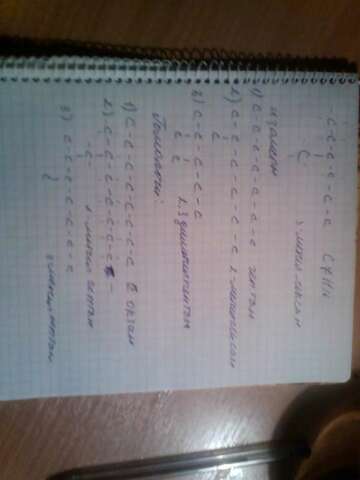 C-C-C-C-C-C C7H16
C
3-метил гексан
изомеры
1) C-C-C-C-C-C-C гептан
2) C-C-C-C-C-C 2-метилгексан
C
3) C-C-C-C-C
C C 2,3 диметилпентан
Гомологи:
1) C-C-C-C-C-C-C-C октан
2) C-C-C-C-C-C-C-
-C- 2-метил гептан
3) C-C-C-C-C-C-C
3 метил гептан